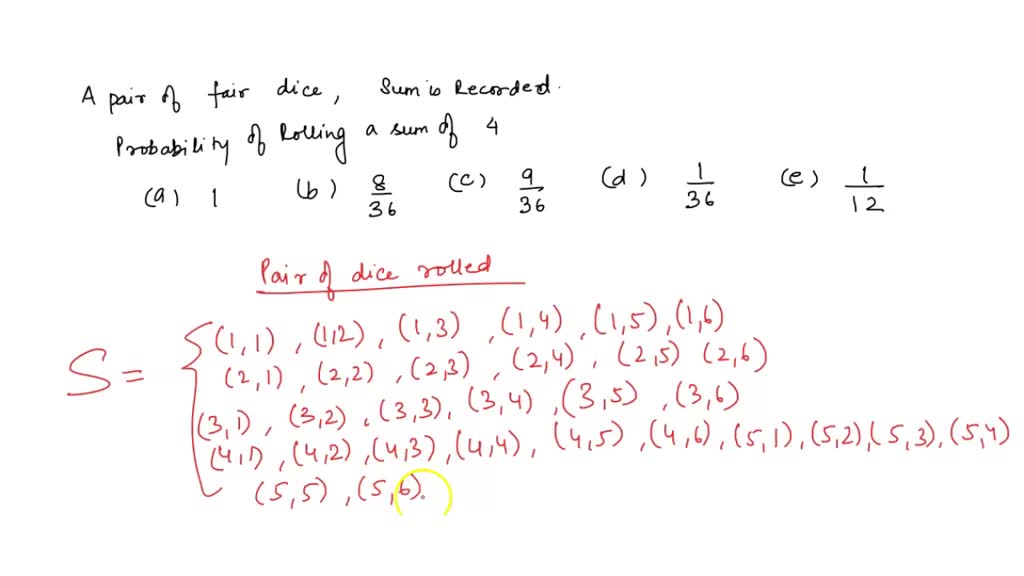 A pair of fair dice, Sum is Recorded.
Probability of Rolling a sum of 4
(a) 1 (b) 8/36 (c) 9/36 (d) 1/36 (e) 1/12
Pair of dice rolled
S = { (1,1), (1,2), (1,3), (1,4), (1,5), (1,6)
(2,1), (2,2), (2,3), (2,4), (2,5) (2,6)
(3,1), (3,2), (3,3), (3,4), (3,5), (3,6)
(4,1), (4,2), (4,3), (4,4), (4,5), (4,6), (5,1), (5,2), (5,3), (5,4)
(5,5), (5,6).